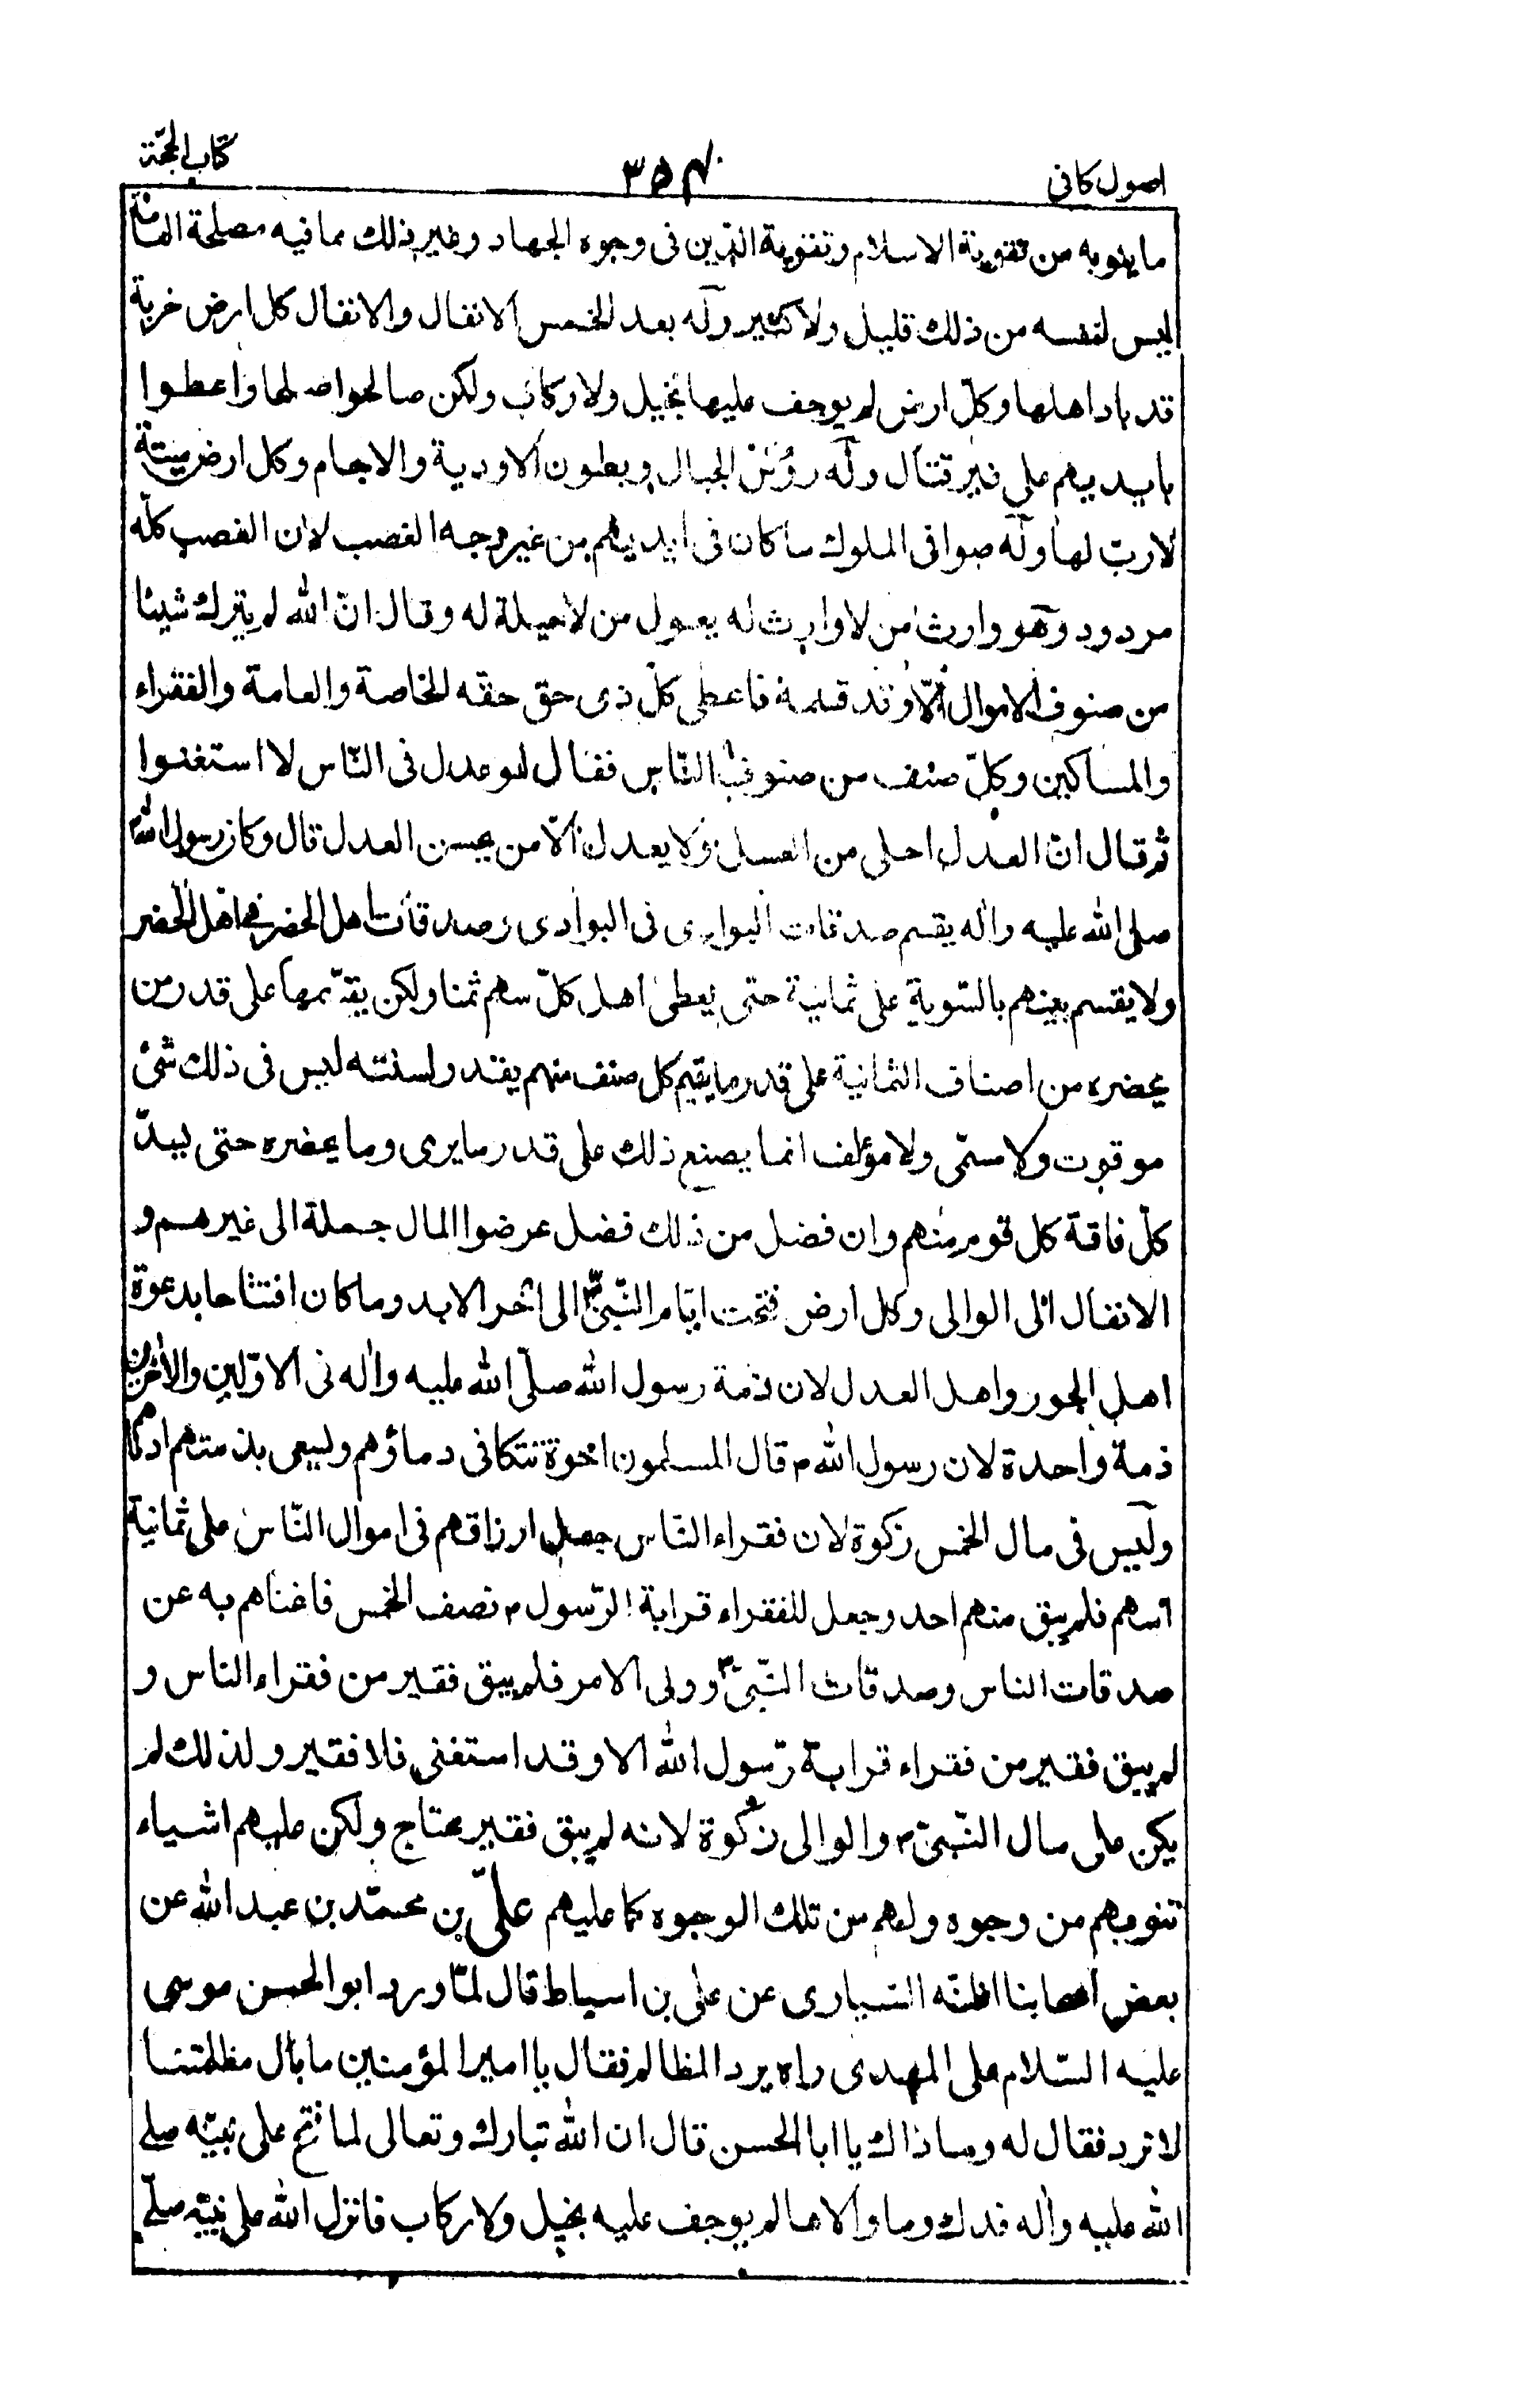 اصول کافی
۳۵۴
کتاب الحجّة
ما ینوبه من تقویة الاسلام وتقویة الدّین فی وجوه الجهاد وغیر ذلك مما فیه مصلحة العامّة
لیس لنفسه من ذلك قلیل ولا کثیر وله بعد الخمس الانفال والانفال کل ارض خربة
قد باد اهلها وکلّ ارض لم یوجف علیها بخیل ولا رکاب ولکن صالحوا صلحا واعطوا
بایدیهم علی غیر قتال وله رؤس الجبال وبطون الاودیة والاجام وکل ارض میتة
لا ربّ لها وله صوافی الملوك ما کان فی ایدیهم من غیر وجه الغصب لان الغصب کلّه
مردود وهو وارث من لا وارث له یعول من لا حیلة له وقال انّ الله لم یترك شیئا
من صنوف الاموال الّا وقد قسمه فاعطی کلّ ذی حق حقّه الخاصة والعامة والفقراء
والمساکین وکلّ صنف من صنوف النّاس فقال لو عدل فی النّاس لا استغنوا
ثم قال انّ العدل احلی من العسل ولا یعدل الّا من یحسن العدل قال وکان رسول الله
صلی الله علیه واله یقسم صدقات البوادی فی البوادی وصدقات اهل الحضر فی اهل الحضر
ولا یقسم بینهم بالسّویة علی ثمانیة حتی یعطی اهل کلّ سهم ثمنا ولکن یقسّمها علی قدر من
یحضره من اصناف الثمانیة علی قدر ما یقیم کل صنف منهم یقدر لسنته لیس فی ذلك شیٔ
موقوت ولا مسمّی ولا مؤلف انما یصنع ذلك علی قدر ما یری وما یحضره حتی یسدّ
کلّ فاقة کل قوم منهم وان فضل من ذلك فضل عرضوا المال جملة الی غیرهم و
الانفال الی الوالی وکل ارض فتحت ایّام النّبیّ الی اخر الابد وما کان افتتاحا بدعوة
اهل الجور واهل العدل لان ذمة رسول الله صلّی الله علیه واله فی الاوّلین والاخرین
ذمة واحدة لان رسول الله م قال المسلمون اخوة تتکافی دماؤهم ویسعی بذمتهم ادناهم
ولیس فی مال الخمس زکوة لان فقراء النّاس جعل ارزاقهم فی اموال النّاس علی ثمانیة
اسهم فلم یبق منهم احد وجعل للفقراء قرابة الرّسول م نصف الخمس فاغناهم به عن
صدقات الناس وصدقات النّبیّ وولی الامر فلم یبق فقیر من فقراء الناس و
لم یبق فقیر من فقراء قرابة رّسول الله الا وقد استغنی فلا فقیر ولذلك لم
یکن علی مال النّبیّ م والوالی زکوة لانه لم یبق فقیر محتاج ولکن علیهم اشیاء
تنوبهم من وجوه ولهم من تلك الوجوه کما علیهم علیّ بن محمّد بن عبد الله عن
بعض اصحابنا اظنّه السّیاری عن علی بن اسباط قال لمّا ورد ابو الحسن موسی
علیه السّلام علی المهدی راه یرد المظالم فقال یا امیر المؤمنین ما بال مظلمتنا
لا ترد فقال له وما ذاك یا ابا الحسن قال ان الله تبارك وتعالی لما فتح علی نبیّه صلی
الله علیه واله فدك وما والاها لم یوجف علیه بخیل ولا رکاب فانزل الله علی نبیّه صلّی